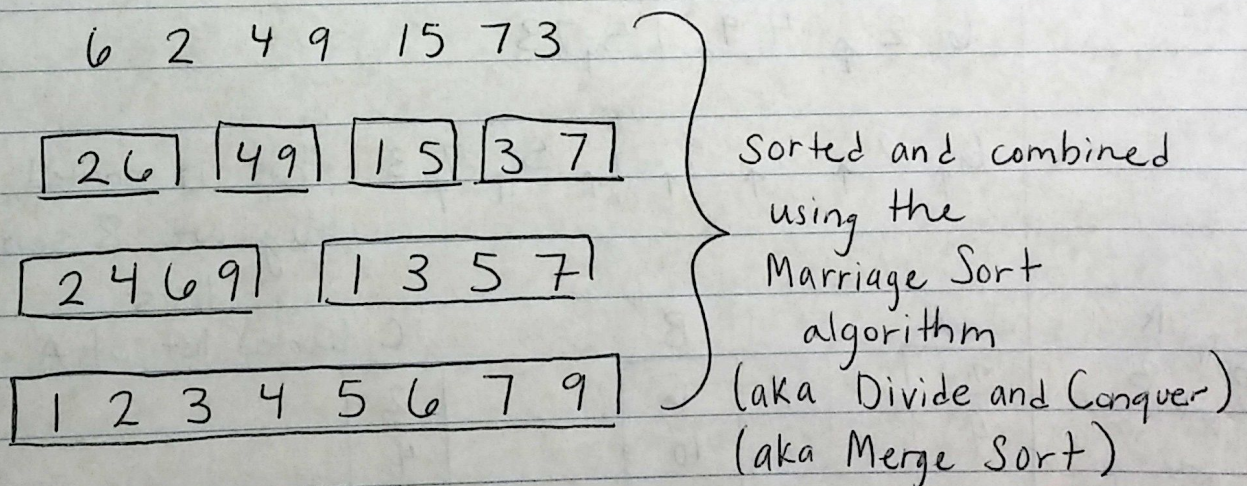 6 2 4 9 15 73
2 6 4 9 1 5 3 7
2 4 6 9 1 3 5 7
1 2 3 4 5 6 7 9
Sorted and combined
using the
Marriage Sort
algorithm
(aka Divide and Conquer)
(aka Merge Sort)